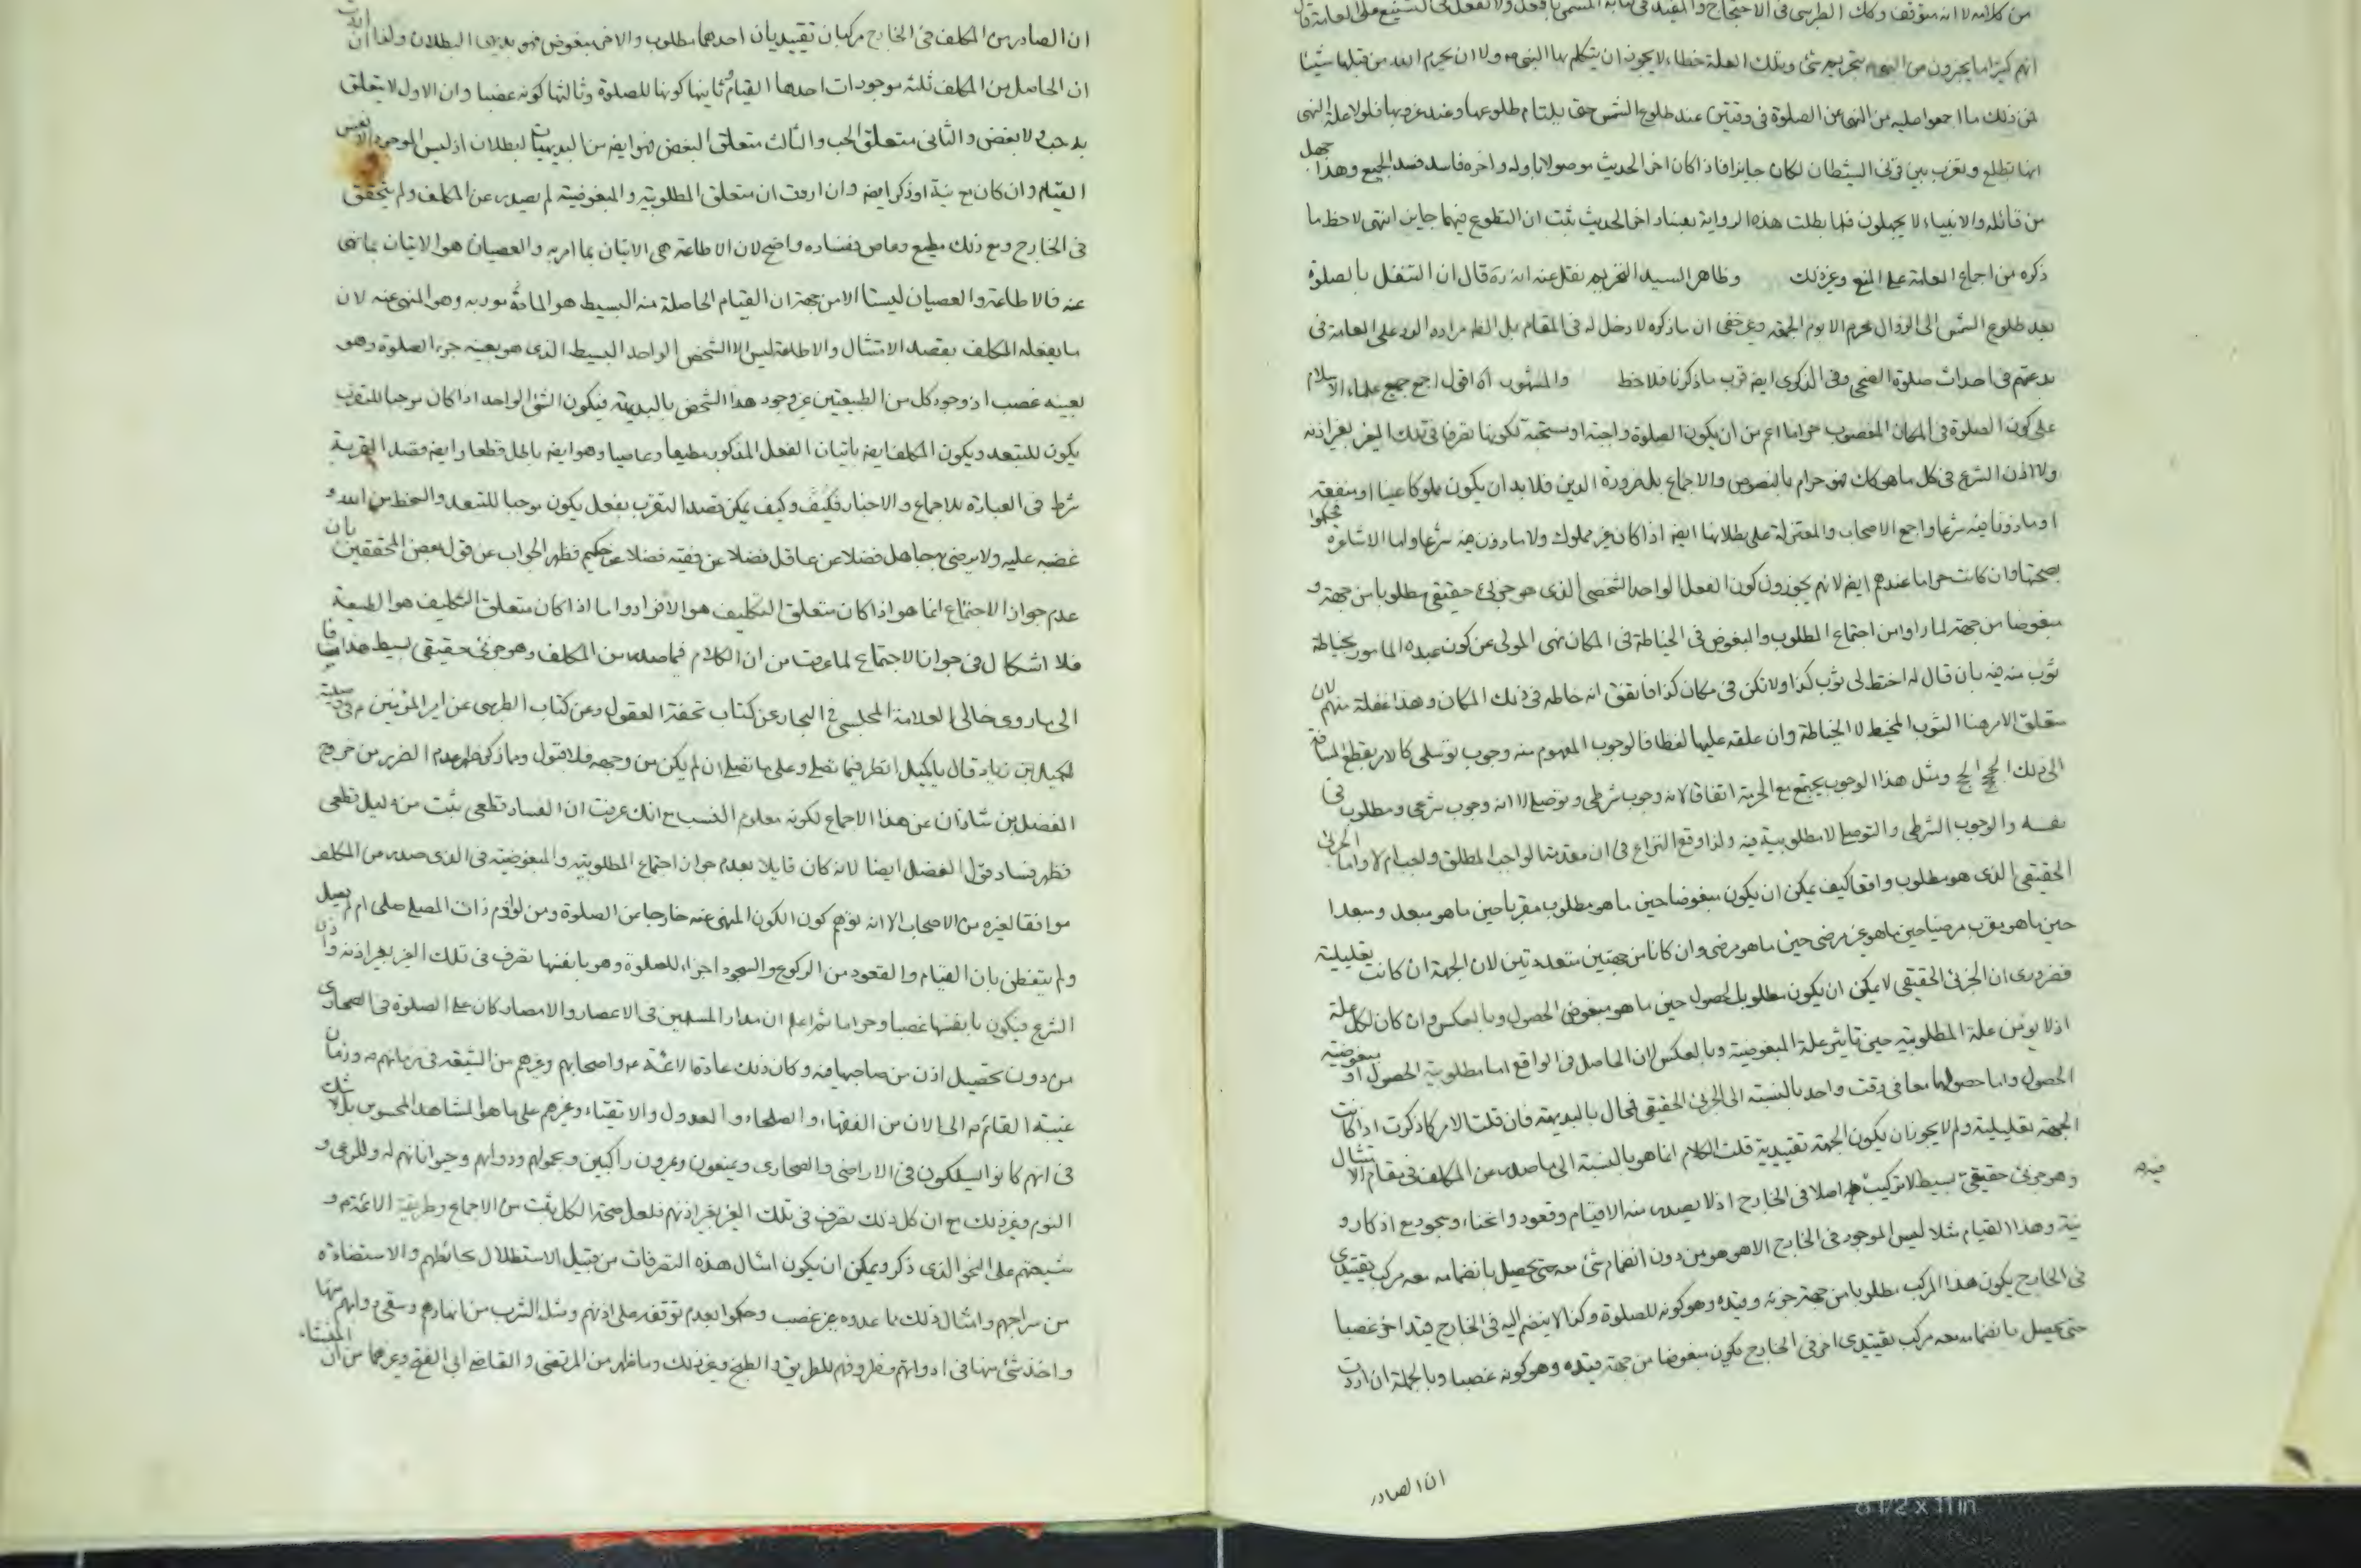 من كلامه لا انه متوقف وكك الطبرسى فى الاحتجاج والمفيد فى
انهم كثيرا ما يخبرون من النبى بتحريم شئ وبتلك العلة خطاء لا يجوز ان يتكلم بها النبى ص ولا ان يحرم الله من قبلها شيئا
فمن ذلك ما اجمعوا عليه من النهى عن الصلوة فى وقتين عند طلوع الشمس حتى يلتام طلوعها وعند غروبها فلولا علة النهى
انها تطلع وتغرب بين قرنى الشيطان لكان جايزا فاذا كان اخر الحديث موصولا باوله واخره فاسد فسد الجميع وهذا جهل
من قائله والانبياء لا يجهلون فلما بطلت هذه الرواية بفساد اخر الحديث ثبت ان التطوع فيهما جايز انتهى لاحظ ما
ذكره من اجماع العامة على المنع وغير ذلك وظاهر السيد التحريم نقل عنه انه ره قال ان التنفل بالصلوة
بعد طلوع الشمس الى الزوال محرم الا يوم الجمعة وغير خفى ان ما ذكره لا دخل له فى المقام بل الظ مراده الرد على العامة فى
بدعتهم فى احداث صلوة الضحى وفى الذكرى ايضا قرب ما ذكرنا فلاحظ والمشهور اقول اجمع جميع علماء الاسلام
على كون الصلوة فى المكان المغصوب حراما اعم من ان يكون الصلوة واجبة او مستحبة لكونها تصرفا فى تلك الغير بغير اذنه
ولا اذن الشرع فى كل ما هو كك فهو حرام بالنصوص والاجماع بل ضرورة الدين فلا بد ان يكون مملوكا عينا او منفعة
او ماذونا فيه شرعا واجمع الاصحاب والمعتزلة على بطلانها ايضا اذا كان غير مملوك ولا ماذون فيه شرعا واما الاشاعرة فحكموا
بصحتها وان كانت حراما عندهم ايضا لانهم يجوزون كون الفعل الواحد الشخصى الذى هو جزئى حقيقى مطلوبا من جهة و
مبغوضا من جهة لما راوا من اجتماع المطلوب والمبغوض فى الخياطة فى المكان نهى المولى عن كون عبده المامور بخياطة
ثوب منه فيه بان قال له اخط لى ثوب كذا ولا تكن فى مكان كذا فاتفق انه خاطه فى ذلك المكان وهذا غفلة منهم لان
متعلق الامر هنا الثوب المخيط لا الخياطة وان علقه عليها لفظا فالوجوب المفهوم منه وجوب توصلى كالامر بقطع المسافة
الى ذلك الحج الحج ومثل هذا الوجوب يجتمع مع الحرمة اتفاقا لانه وجوب شرطى وتوصلى لا انه وجوب شرعى ومطلوب فى
نفسه والوجوب الشرطى والتوصلى لا مطلوبية فيه ولذا وقع النزاع فى ان مقدمة الواجب المطلق واجب ام لا واما الجزئى
الحقيقى الذى هو مطلوب واقعا كيف يمكن ان يكون مبغوضا حين ما هو مطلوب مقربا حين ما هو مبعد ومبعدا
حين ما هو يقرب مرضيا حين ما هو غير مرضى حين ما هو مرضى وان كانا من جهتين متعددتين لان الجهة ان كانت تعليلية
فضرورى ان الجزئى الحقيقى لا يمكن ان يكون مطلوب الحصول حين ما هو مبغوض الحصول وبالعكس وان كان لكل علة
اذ لا يؤمن علة المطلوبية حين تاثير علة المبغوضية وبالعكس لان الحاصل فى الواقع اما مطلوبية الحصول او مبغوضية
الحصول واما حصولهما معا فى وقت واحد بالنسبة الى الجزئى الحقيقى فمحال بالبديهة فان قلت الامر كما ذكرت اذا كانت
الجهة تعليلية ولم لا يجوز ان يكون الجهة تقييدية قلت الكلام انما هو بالنسبة الى ما صدر من المكلف فى مقام الامتثال
وهو جزئى حقيقى بسيط لا تركيب فيه اصلا فى الخارج اذ لا يصدر منه الا قيام وقعود وانحناء وسجود مع اذكار و
نية وهذا القيام مثلا ليس الموجود فى الخارج الا هو هو من دون انضمام شئ معه حتى يحصل بانضمامه معه مركب تقييدى
فى الخارج يكون هذا المركب مطلوبا من جهة جزئه وقيده وهو كونه للصلوة وكذا لا ينضم اليه فى الخارج قيد اخر غصبا
حتى يحصل بانضمامه معه مركب تقييدى اخر فى الخارج يكون مبغوضا من جهة قيده وهو كونه غصبا وبالجملة ان اردت
ان الصادر
ان الصادر من المكلف فى الخارج مركبان تقييديان احدهما مطلوب والاخر مبغوض فهو بديهى البطلان ولما ان اردت
ان الحاصل من المكلف ثلثة موجودات احدها القيام وثانيها كونها للصلوة وثالثها كونه غصبا وان الاول لا يتعلق
به حب ولا بغض والثانى متعلق الحب والثالث متعلق البغض فهو ايضا من البديهيات البطلان اذ ليس الموجود الا نفس
القيام وان كان مع نية او ذكر ايضا وان اردت ان متعلق المطلوبية والمبغوضية لم يصدر عن المكلف ولم يتحقق
فى الخارج ومع ذلك مطيع وعاص ففساده واضح لان الاطاعة هى الاتيان بما امر به والعصيان هو الاتيان بما نهى
عنه فالاطاعة والعصيان ليستا الا من جهة ان القيام الحاصلة منه البسيط هو المامور به وهو المنهى عنه لان
ما يفعله المكلف بقصد الامتثال والاطاعة ليس الا الشخص الواحد البسيط الذى هو بعينه جزء الصلوة وهو
بعينه غصب اذ وجود كل من الطبيعتين عين وجود هذا الشخص بالبديهة فيكون الشئ الواحد اذا كان موجبا للتقرب
يكون للتبعد ويكون المكلف ايضا باتيان الفعل المذكور مطيعا وعاصيا وهو ايضا باطل قطعا وايضا قصد القربة
شرط فى العبادة بالاجماع والاخبار فكيف وكيف يمكن قصد التقرب بفعل يكون موجبا للتبعد والسخط من الله و
غضبه عليه ولا يرضى به جاهل فضلا عن عاقل فضلا عن فقيه فضلا عن حكيم فظهر الجواب عن قول بعض المحققين بان
عدم جواز الاجتماع انما هو اذا كان متعلق التكليف هو الافراد واما اذا كان متعلق التكليف هو الطبيعة
فلا اشكال فى جواز الاجتماع لما عرفت من ان الكلام فيما صدر من المكلف وهو جزئى حقيقى بسيط هذا مضافا
الى ما روى خالى العلامة المجلسى فى البحار عن كتاب تحفة العقول وعن كتاب الطبرسى عن امير المؤمنين ع فى وصيته
لكميل بن زياد قال يا كميل انظر فيما تصلى وعلى ما تصلى ان لم يكن من وجهه فلا قبول وما ذكر ظهر عدم الضرر من خروج
الفضل بن شاذان عن هذا الاجماع لكونه معلوم النسب مع انك عرفت ان الفساد قطعى ثبت من دليل قطعى
فظهر فساد قول الفضل ايضا لانه كان قايلا بعدم جواز اجتماع المطلوبية والمبغوضية فى الذى صدر من المكلف
موافقا لغيره من الاصحاب الا انه توهم كون الكون المنهى عنه خارجا عن الصلوة ومن لوازم ذات المصلى صلى ام لم يصل
ولم يتفطن بان القيام والقعود من الركوع والسجود اجزاء للصلوة وهو بانفسها تصرف فى تلك الغير بغير اذنه واذن
الشرع فيكون بانفسها غصبا وحراما ثم اعلم ان مدار المسلمين فى الاعصار والامصار كان على الصلوة فى الصحارى
من دون تحصيل اذن من صاحبها فيه وكان ذلك عادة الائمة ع واصحابهم وغيرهم من الشيعة فى زمانهم ع وزمان
غيبة القائم ع الى الان من الفقهاء والصلحاء والعدول والاتقياء وغيرهم على ما هو المشاهد المحسوس بلا شك
فى انهم كانوا يسلكون فى الاراضى والصحارى ويمنعون ويمرون راكبين وبحمولهم ودوابهم وحيواناتهم له وللرعى و
النوم وغير ذلك مع ان كل ذلك تصرف فى تلك الغير بغير اذنهم فلعل صحة الكل ثبت من الاجماع وطريقة الائمة ع و
شيعتهم على النحو الذى ذكر ويمكن ان يكون امثال هذه التصرفات من قبيل الاستظلال بحائطهم والاستضاءة
من سراجهم وامثال ذلك مما عدوه غير غصب وحكموا بعدم توقفه على اذنهم ومثل الشرب من انهارهم وسقى دوابهم منها
واخذ شئ منها فى ادواتهم وظروفهم للطريق والطبخ وغير ذلك وما ظهر من المرتضى والقاضى ابى الفتح وغيرهما من ان المنشاء